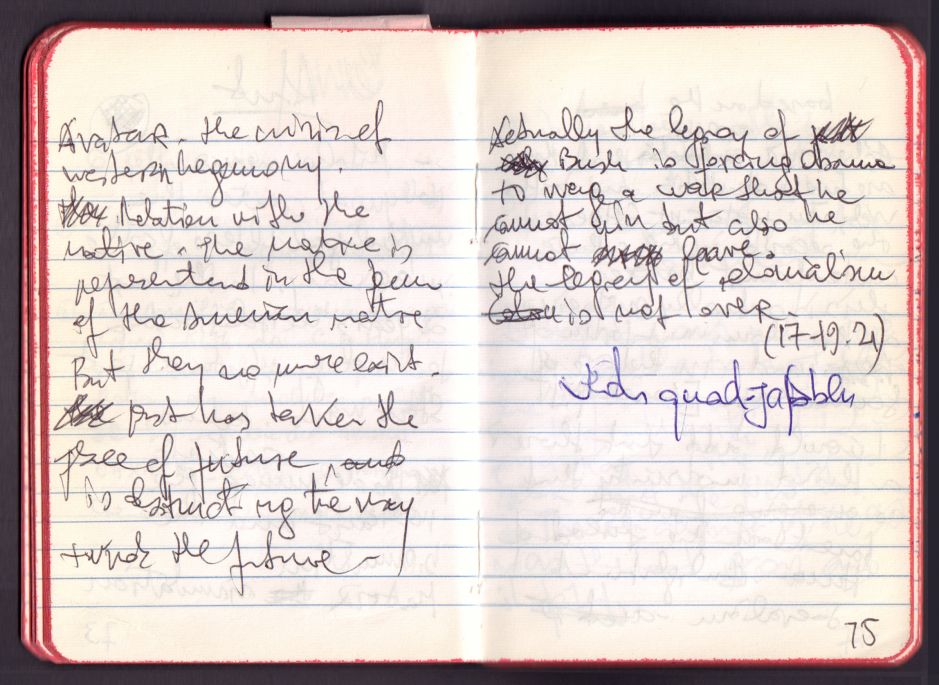 Avatar - the crisis of
western hegemony.
Relation with the
native. The native is
represented in the
of the American native
But they no more exist.
past has taken the
place of future,
is obstructing the way
the future -
Actually the legacy of
Bush is forcing Obama
to wage a war that he
cannot win but also he
cannot leave
the legacy of colonialism
is not over.
(17-19.2)
75